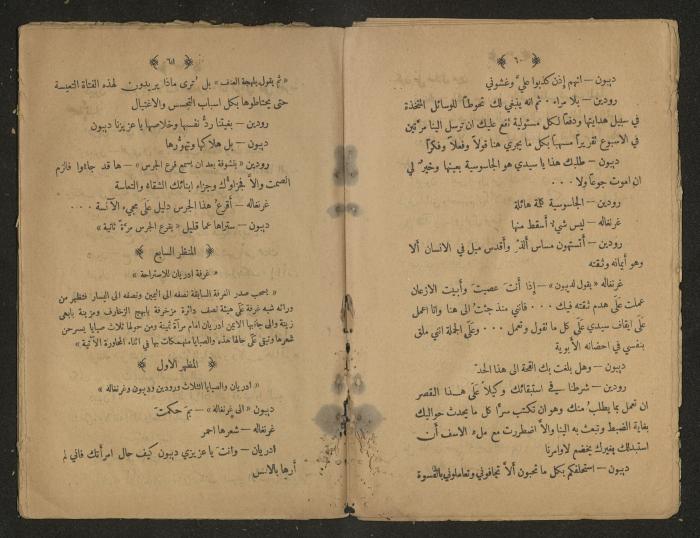 ﴿ ٦٠ ﴾
ديبون – انهم إذن كذبوا عليَّ وغشوني
رودين – بلا مراء . ثم انه ينبغي لك تحوطاً للوسائل المتخذة
في سبيل هدايتها ودفعاً لكل مسئولية تقع عليك ان ترسل الينا مرّتين
في الاسبوع تقريراً مسهباً بكل ما يجري هنا قولاً وفعلاً وفكراً
ديبون – طلبك هذا يا سيدي هو الجاسوسية بعينها وخيرٌ لي
ان اموت جوعاً ولا . . .
رودين – الجاسوسية كلمة هائلة
غرنفاله – ليس شيءٌ أسقط منها
رودين – أتستهون مساس ألذّ وأقدس ميل في الانسان ألا
وهو أيمانه وثقته
غرنفاله « يقول لديبون » – إذا أنتَ عصيتَ وأبيت الاذعان
عملت على هدم ثقته فيك . . . فانني منذ جئت الى هنا وانا اعمل
على ايقاف سيدي على كل ما تقول وتعمل . . . وعلى الجملة انني ملق
بنفسي في احضانه الابوية
ديبون – وهل بلغت بك القحة الى هذا الحدّ
رودين – شرطنا في استبقائك وكيلاً على هذا القصر
ان تعمل بما يطلبُ منك وهو ان تكتب سرًّا كل ما يحدث حواليك
بغاية الضبط وتبعث به الينا والاَّ اضطررت مع ملء الاسف أن
استبدلك بغيرك يخضع لاوامرنا
ديبون – استحلفكم بكل ما تحبون ألاَّ تجافوني وتعاملوني بالقسوة
﴿ ٦١ ﴾
« ثم يقول بلهجة العنف » بل تُرى ماذا يريدون لهذه الفتاة التعيسة
حتى يحتاطوها بكل اسباب التجسس والاغتيال
رودين – بغيتنا ردُّ نفسها وخلاصها يا عزيزنا ديبون
ديبون – بل هلاكها وتهورها
رودين « بلشوفة بعد ان يسمع قرع الجرس » – ها قد جاءوا فالزم
الصمت والاَّ فجزاؤك وجزاء ابنائك الشقاء والتعاسة
غرنفاله – أقرعُ هذا الجرس دليل على مجيء الآنسة . . .
ديبون – ستراها عما قليل « يقرع الجرس مرةً ثانية »
﴿ المنظر السابع ﴾
« غرفة ادريان للاستراحة »
« يسحب صدر الغرفة السابقة نصفه الى اليمين ونصفه الى اليسار فتظهر من
ورائه شبه غرفة على هيئة نصف دائرة مزخرفة بابهج الزخارف ومزينة بابهى
زينة والى جانبها الايمن ادريان امام مرآة ثمينة ومن حولها ثلاث صبايا يسرحن
شعرها وتبقى على حالها هذه والصبايا منهمكات بها في اثناء المحاورة الآتية »
﴿ المظهر الاول ﴾
« ادريان والصبايا الثلاث ورودين وديبون وغرنفاله »
ديبون « الى غرنفاله » – بمَ حكمتَ
غرنفاله – شعرها احمر
ادريان – وانت يا عزيزي ديبون كيف حال امرأتك فاني لم
أرها بالامس